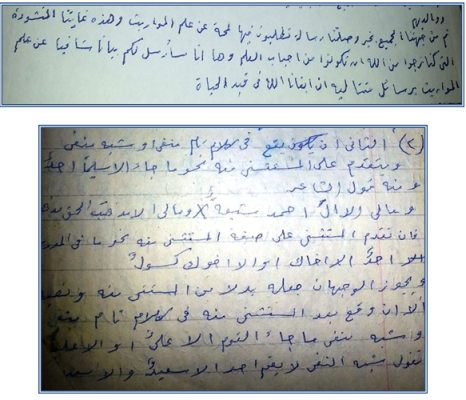 ووالديهم
ثم من جهتنا الجميع بخير وصلتنا رسالة تطلبون فيها لمحة عن علم المواريث وهذه غايتنا المنشودة
التي كنا نرجوا من الله ان تكونوا من احباب العلم وها انا سأرسل لكم بيانا شافيا عن علم
المواريث برسائل متتالية ان ابقانا الله في قيد الحياة
(٢) الثاني ان يقع في كلام تام منفي او شبه منفي
ويتقدم على المستثنى منه نحو ما جاء الا سليما احد
ومنه قول الشاعر
ومالي الا آل احمد شيعة X ومالي الا مذهب الحق مذهب
فان تقدم المستثنى على صفة المستثنى منه نحو ما في
احد الا اخاك او الا اخوك كسول
ويجوز الوجهان جعله بدلا من المستثنى منه
الا ان وقع بعد المستثنى منه في كلام تام منفي
وشبه منفي ما جاء القوم الا علي او الا عليا
تقول شبه النفي لا يقم احد الا سعيد والا سعيدا